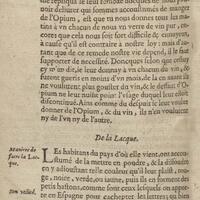 me repliqua le seul remede
ne delivrer sont pommes accoustumées de manger
de l'Opium, est que tu nous donnes tous les ma-
tins à vn chacun de nous vn verre de vin pur, en-
core que cela nous soit fort difficile & ennuyeux,
à cause qu'il est contraire à nostre loy: mais d'au-
tant que de ce remede nostre vie depend, il le faut
supporter de necessité. Doncques selon que
dir, ie leur donnay à vn chacun du vin, &
furent guerris en moins d'vn mois, de là en auant ils
ne voulurent plus gouster du vin, & le desaut d'O-
pium ne leur nuisit point: l'vsage duquel leur estoit
discontinué. Ains comme du despuis ie leur voulus
donner de l'Opium, & du vin, ils n'en voulurent
ny de l'vn ny de l'autre.
De la Lacque.
Maniere de
faire la Lac-
que.
LEs habitans du pays d'où elle vient, ont accou-
stumé de la mettre en poudre, & la dissoudre
en y adioustant telle couleur qu'il leur plaist, rou-
ge, noire, verde, ou iaune, puis ils en forment des
petits bastons, comme sont ceux lesquels on appor-
te en Espagne pour cachepter les lettres; ou bien